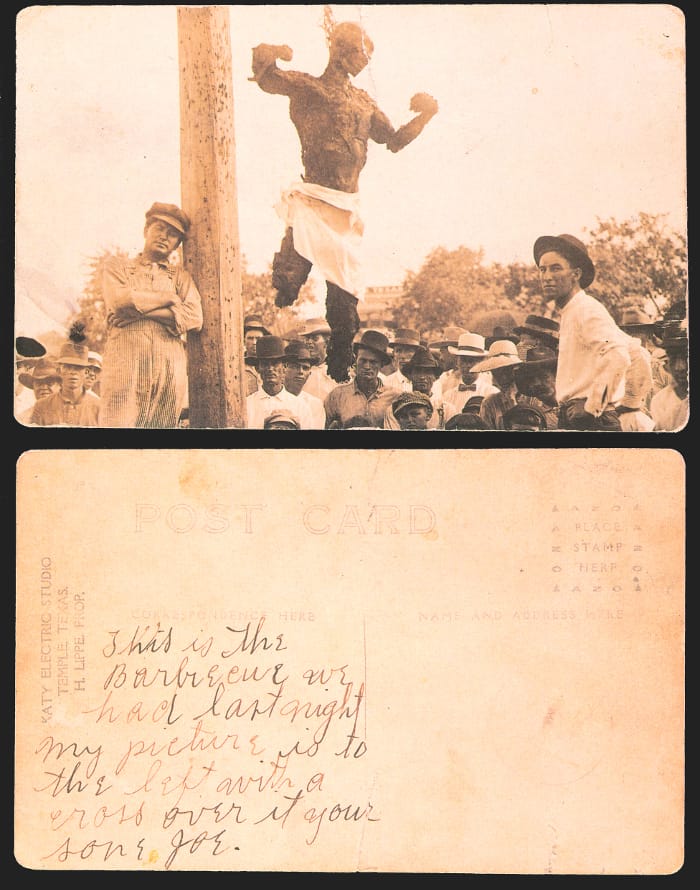 POST CARD
AZO
PLACE
STAMP
HERE
AZO
KATY ELECTRIC STUDIO
TEMPLE TEXAS.
H. LIPPE. PROP.
CORRESPONDENCE HERE
NAME AND ADDRESS HERE
This is the
Barbecue we
had last night
My picture is to
the left with a
cross over it your
sone Joe.